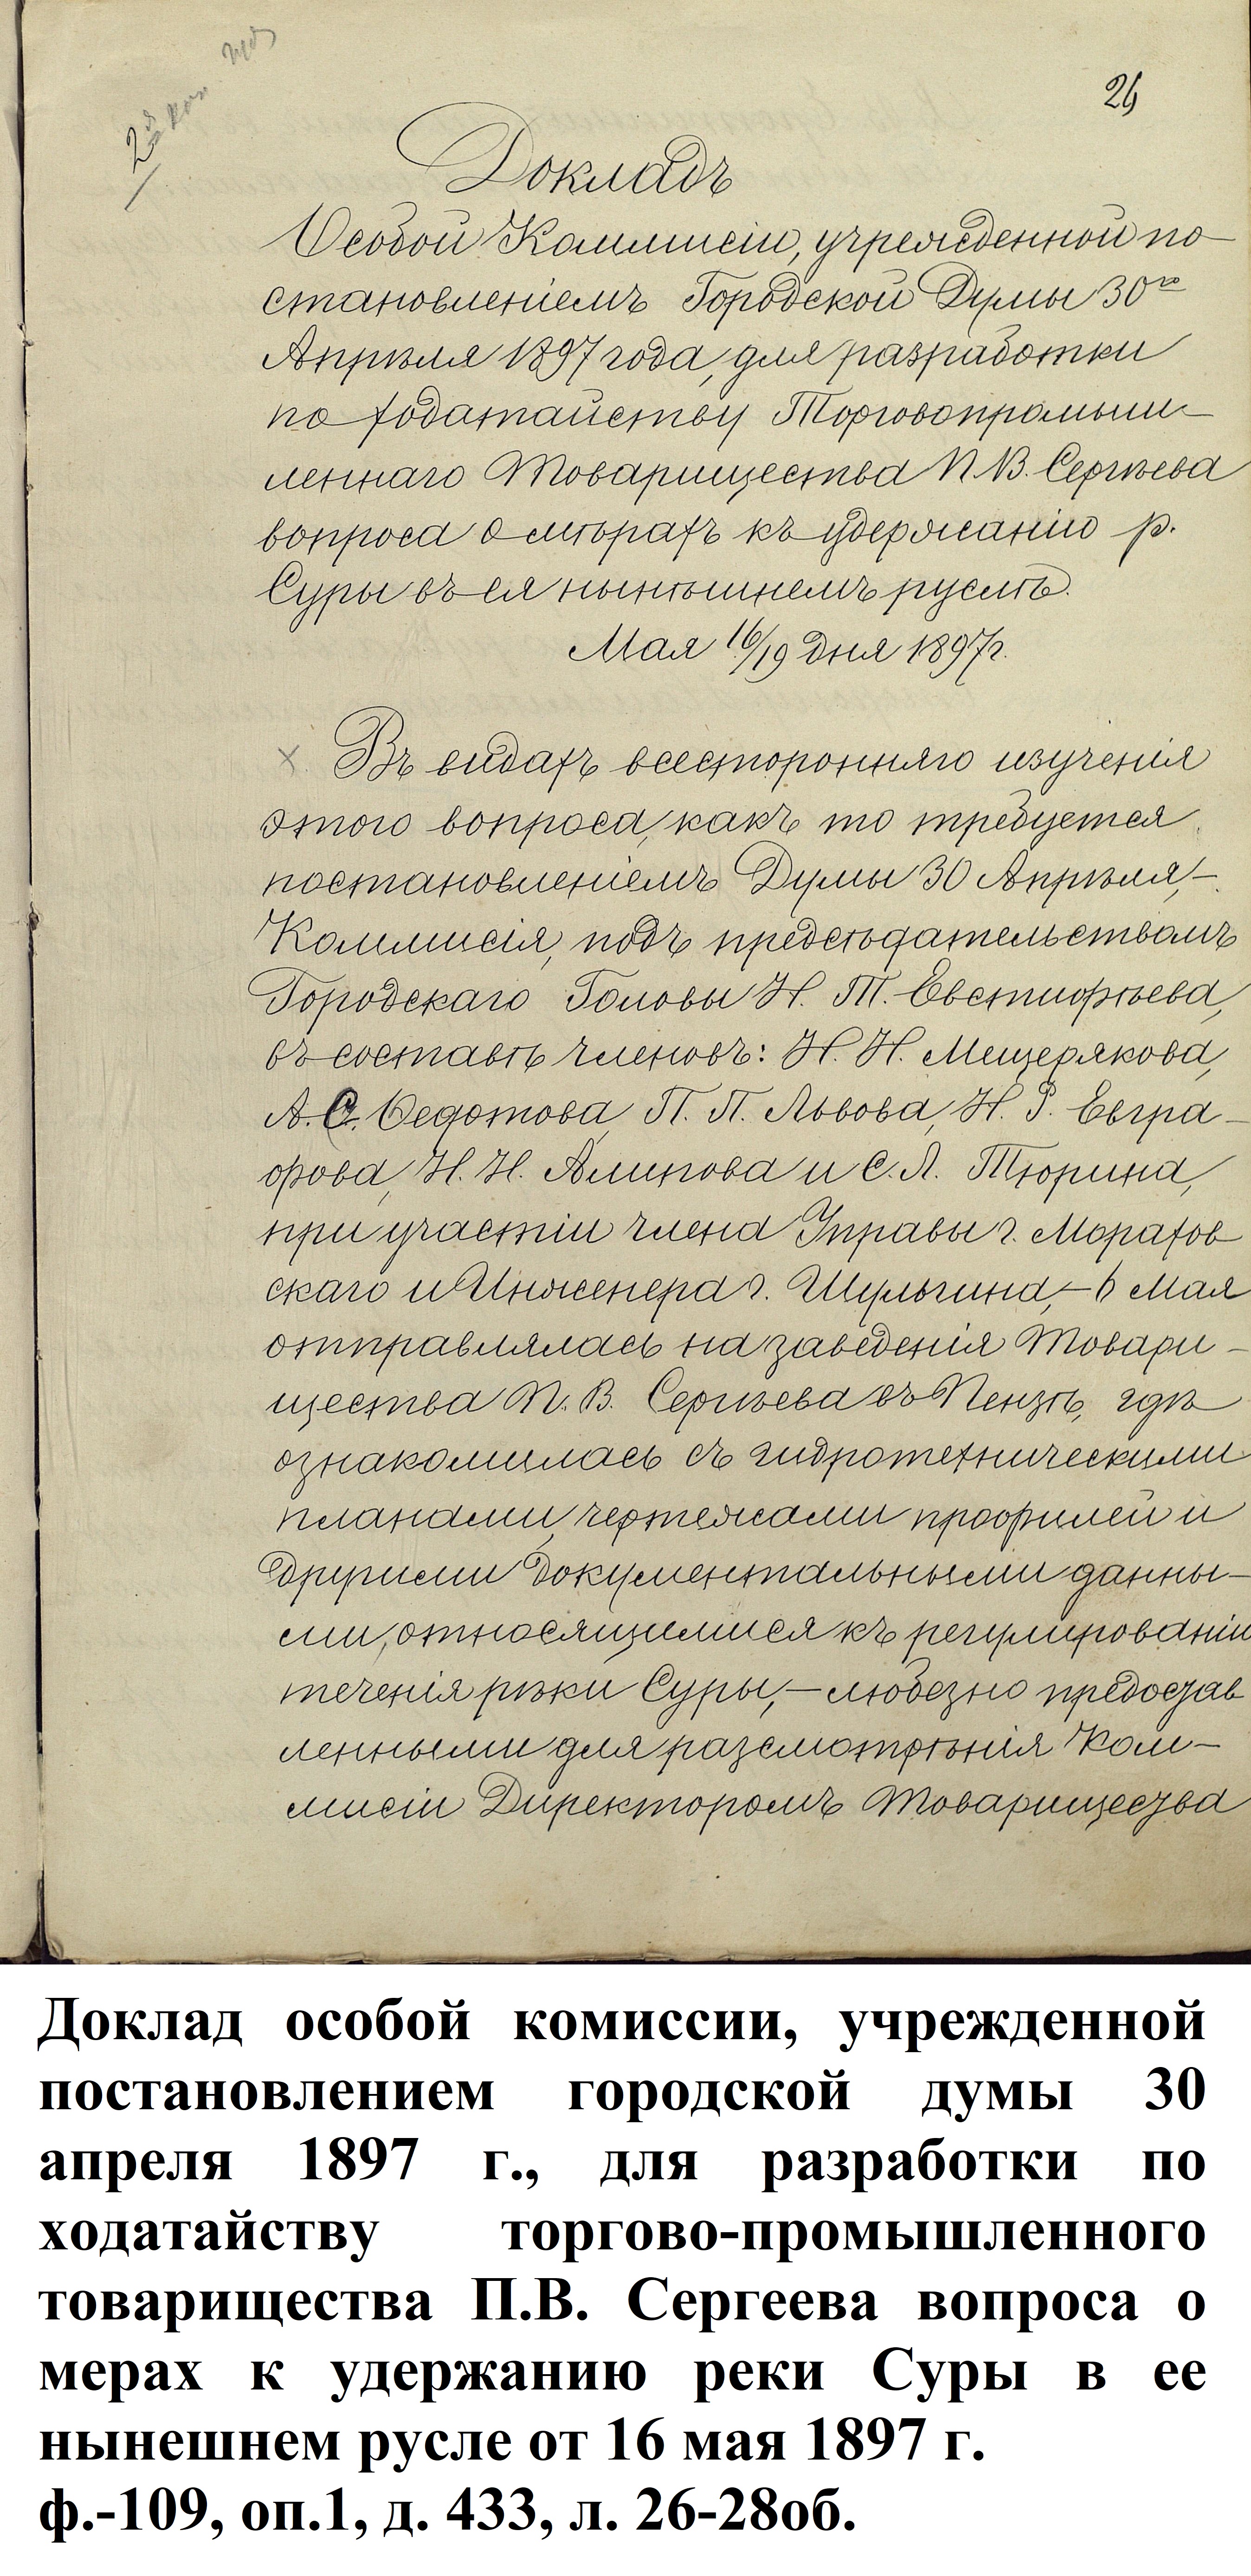 26
Докладъ
Особой Коммисіи, учрежденной по–
становленіемъ Городской Думы 30го
Апрѣля 1897 года, для разработки
по ходатайству Торговопромыш–
леннаго Товарищества П. В. Сергѣева
вопроса о мѣрахъ къ удержанію р.
Суры въ ея нынѣшнемъ руслѣ.
Мая 16/19 дня 1897 г.
Въ видахъ всесторонняго изученія
этого вопроса, какъ то требуется
постановленіемъ Думы 30 Апрѣля,–
Коммисія, подъ предсѣдательствомъ
Городскаго Головы Н. Т. Евстифѣева,
въ составѣ членовъ: Н. Н. Мещерякова,
А. С. Ѳедотова, П. П. Львова, Н. Р. Евгра–
фова, Н. Н. Алипова и С. Л. Тюрина,
при участіи члена Управы г. Морахов
скаго и Инженера г. Шульгина,– 6 Мая
отправлялась на заведенія Товари–
щества П. В. Сергѣева въ Пензѣ, гдѣ
ознакомилась съ гидротехническими
планами, чертежами профилей и
другими документальными данны–
ми, относящимися къ регулированію
теченія рѣки Суры,– любезно предостав
ленными для разсмотрѣнія Ком–
мисіи Директоромъ Товарищества
Доклад особой комиссии, учрежденной
постановлением городской думы 30
апреля 1897 г., для разработки по
ходатайству торгово-промышленного
товарищества П.В. Сергеева вопроса о
мерах к удержанию реки Суры в ее
нынешнем русле от 16 мая 1897 г.
ф.-109, оп.1, д. 433, л. 26-28об.